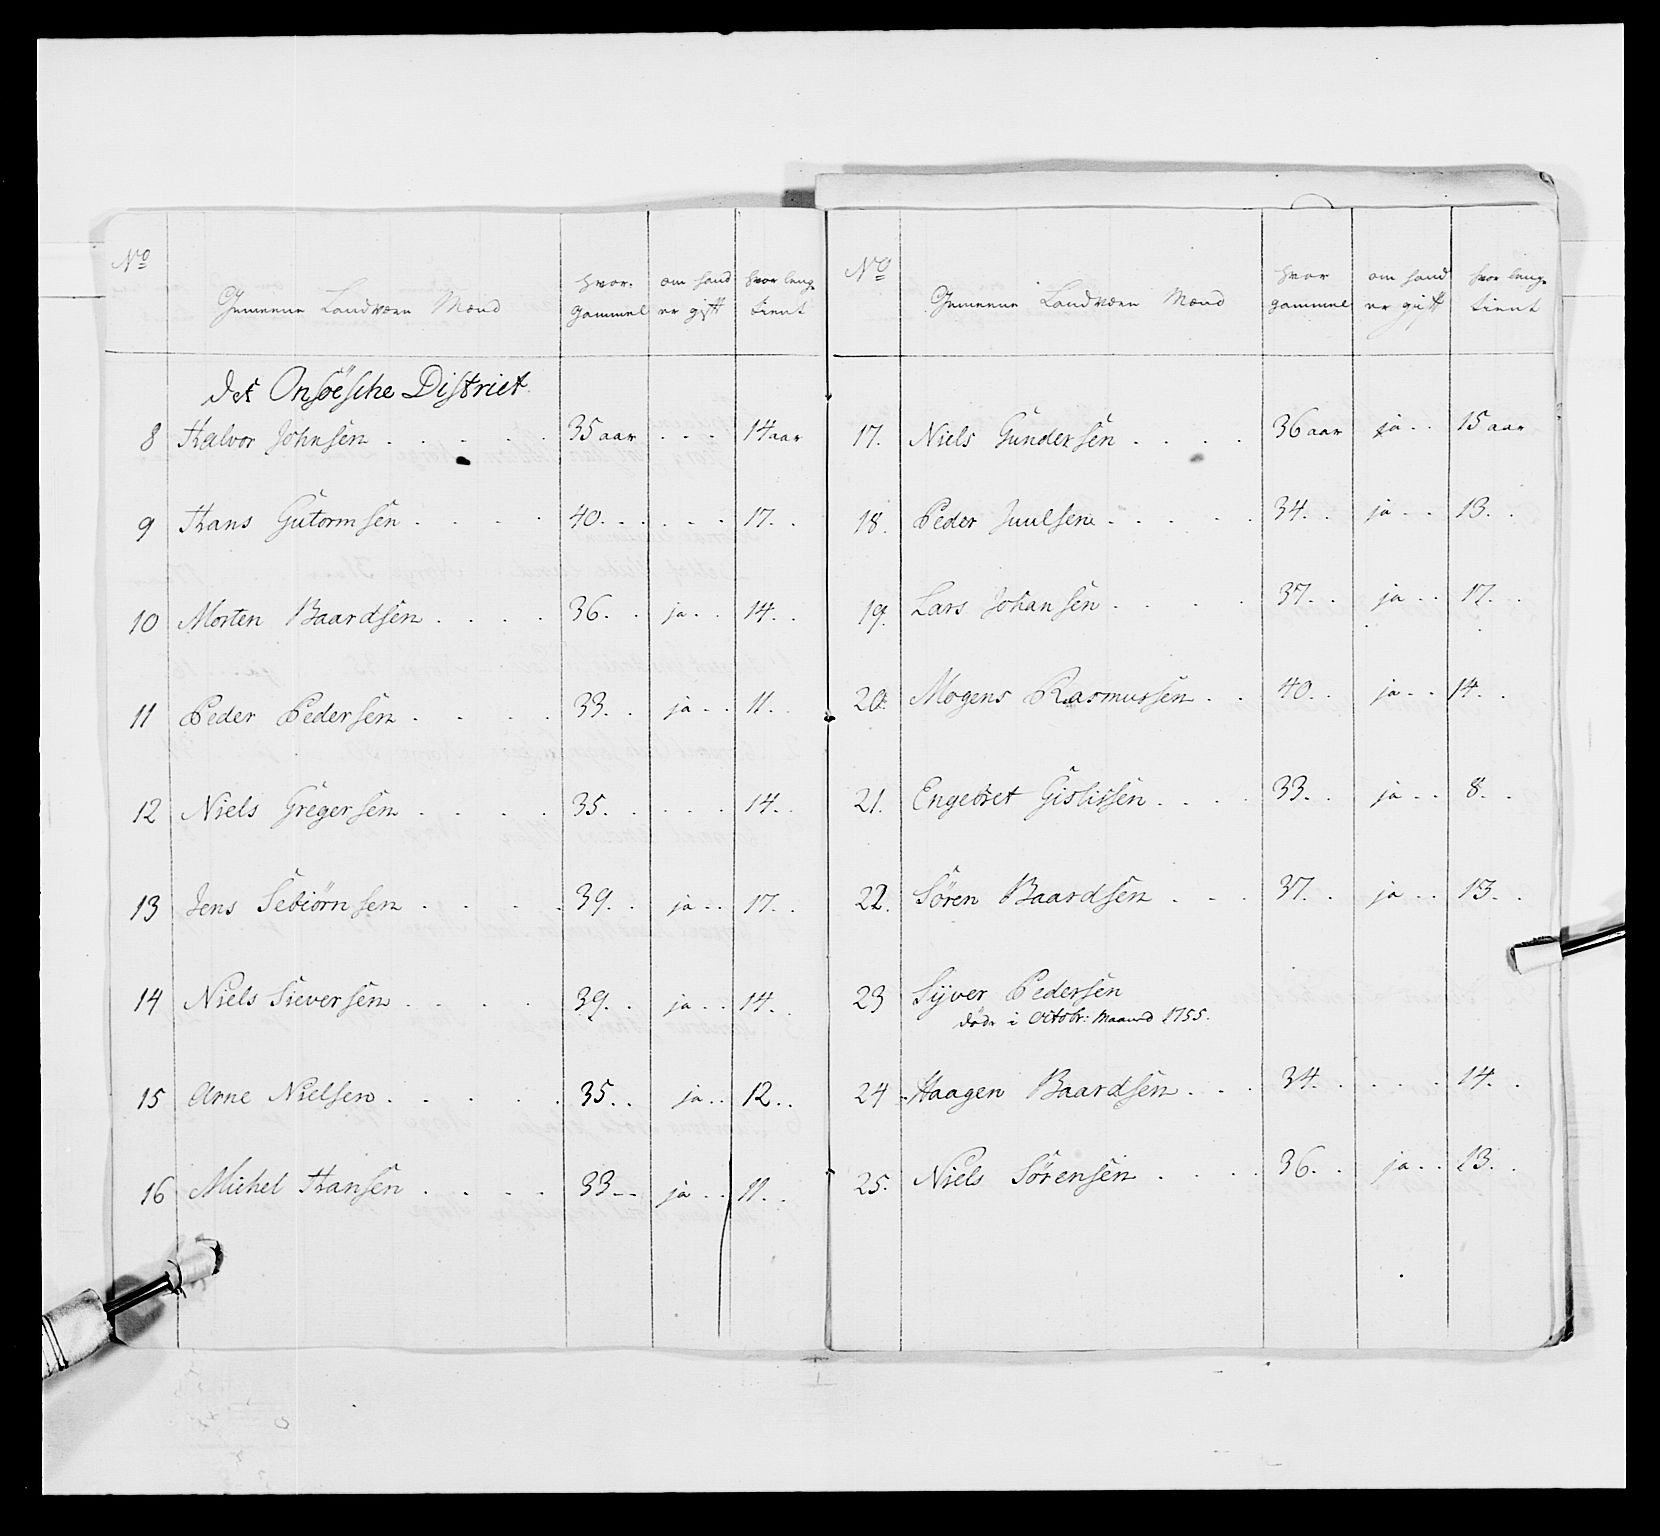 No
Gemeene Landværn Mænd
hvor gammel
om hand er gift
hvor lenge tient
Det Onsöesche District
8 Halvor Johnsen . . . . . 35 aar . . . 14 aar
9 Hans Gutormsen . . . . 40. . . . . . 17. .
10 Morten Baardsen . . . . 36. . ja. . 14. .
11 Peder Pedersen . . . . 33. . ja . . 11. .
12 Niels Gregersen . . . . 35. . . . . 14. .
13 Jens Sebiörnsen . . . . 39. . ja . . 17. .
14 Niels Sieversen . . . . 39. . ja . . 14. .
15 Arne Nielsen . . . . . 35. . ja . . 12 . .
16 Michel Hansen . . . . 33 - - ja . . 11. .
No
Gemeene Landværn Mænd
hvor gammel
om hand er gift
hvor lenge tient
17. Niels Gundersen . . . . 36 aar ja . . 15 aar
18. Peder Juulsen . . . . . 34. . ja . . 13. .
19. Lars Johansen . . . . 37. . ja . . 17. .
20. Mogens Rasmussen . . 40. . ja . . 14. .
21. Engebret Gislissen . . . . 33. . ja . . 8. .
22. Sören Baardsen . . . 37. . ja . . 13. .
23 Syver Pedersen
döde i Octobr: Maaned 1755.
24 Haagen Baardsen . . . 34. . . . . 14. .
25. Niels Sörensen . . . . 36. . ja . . 13. .